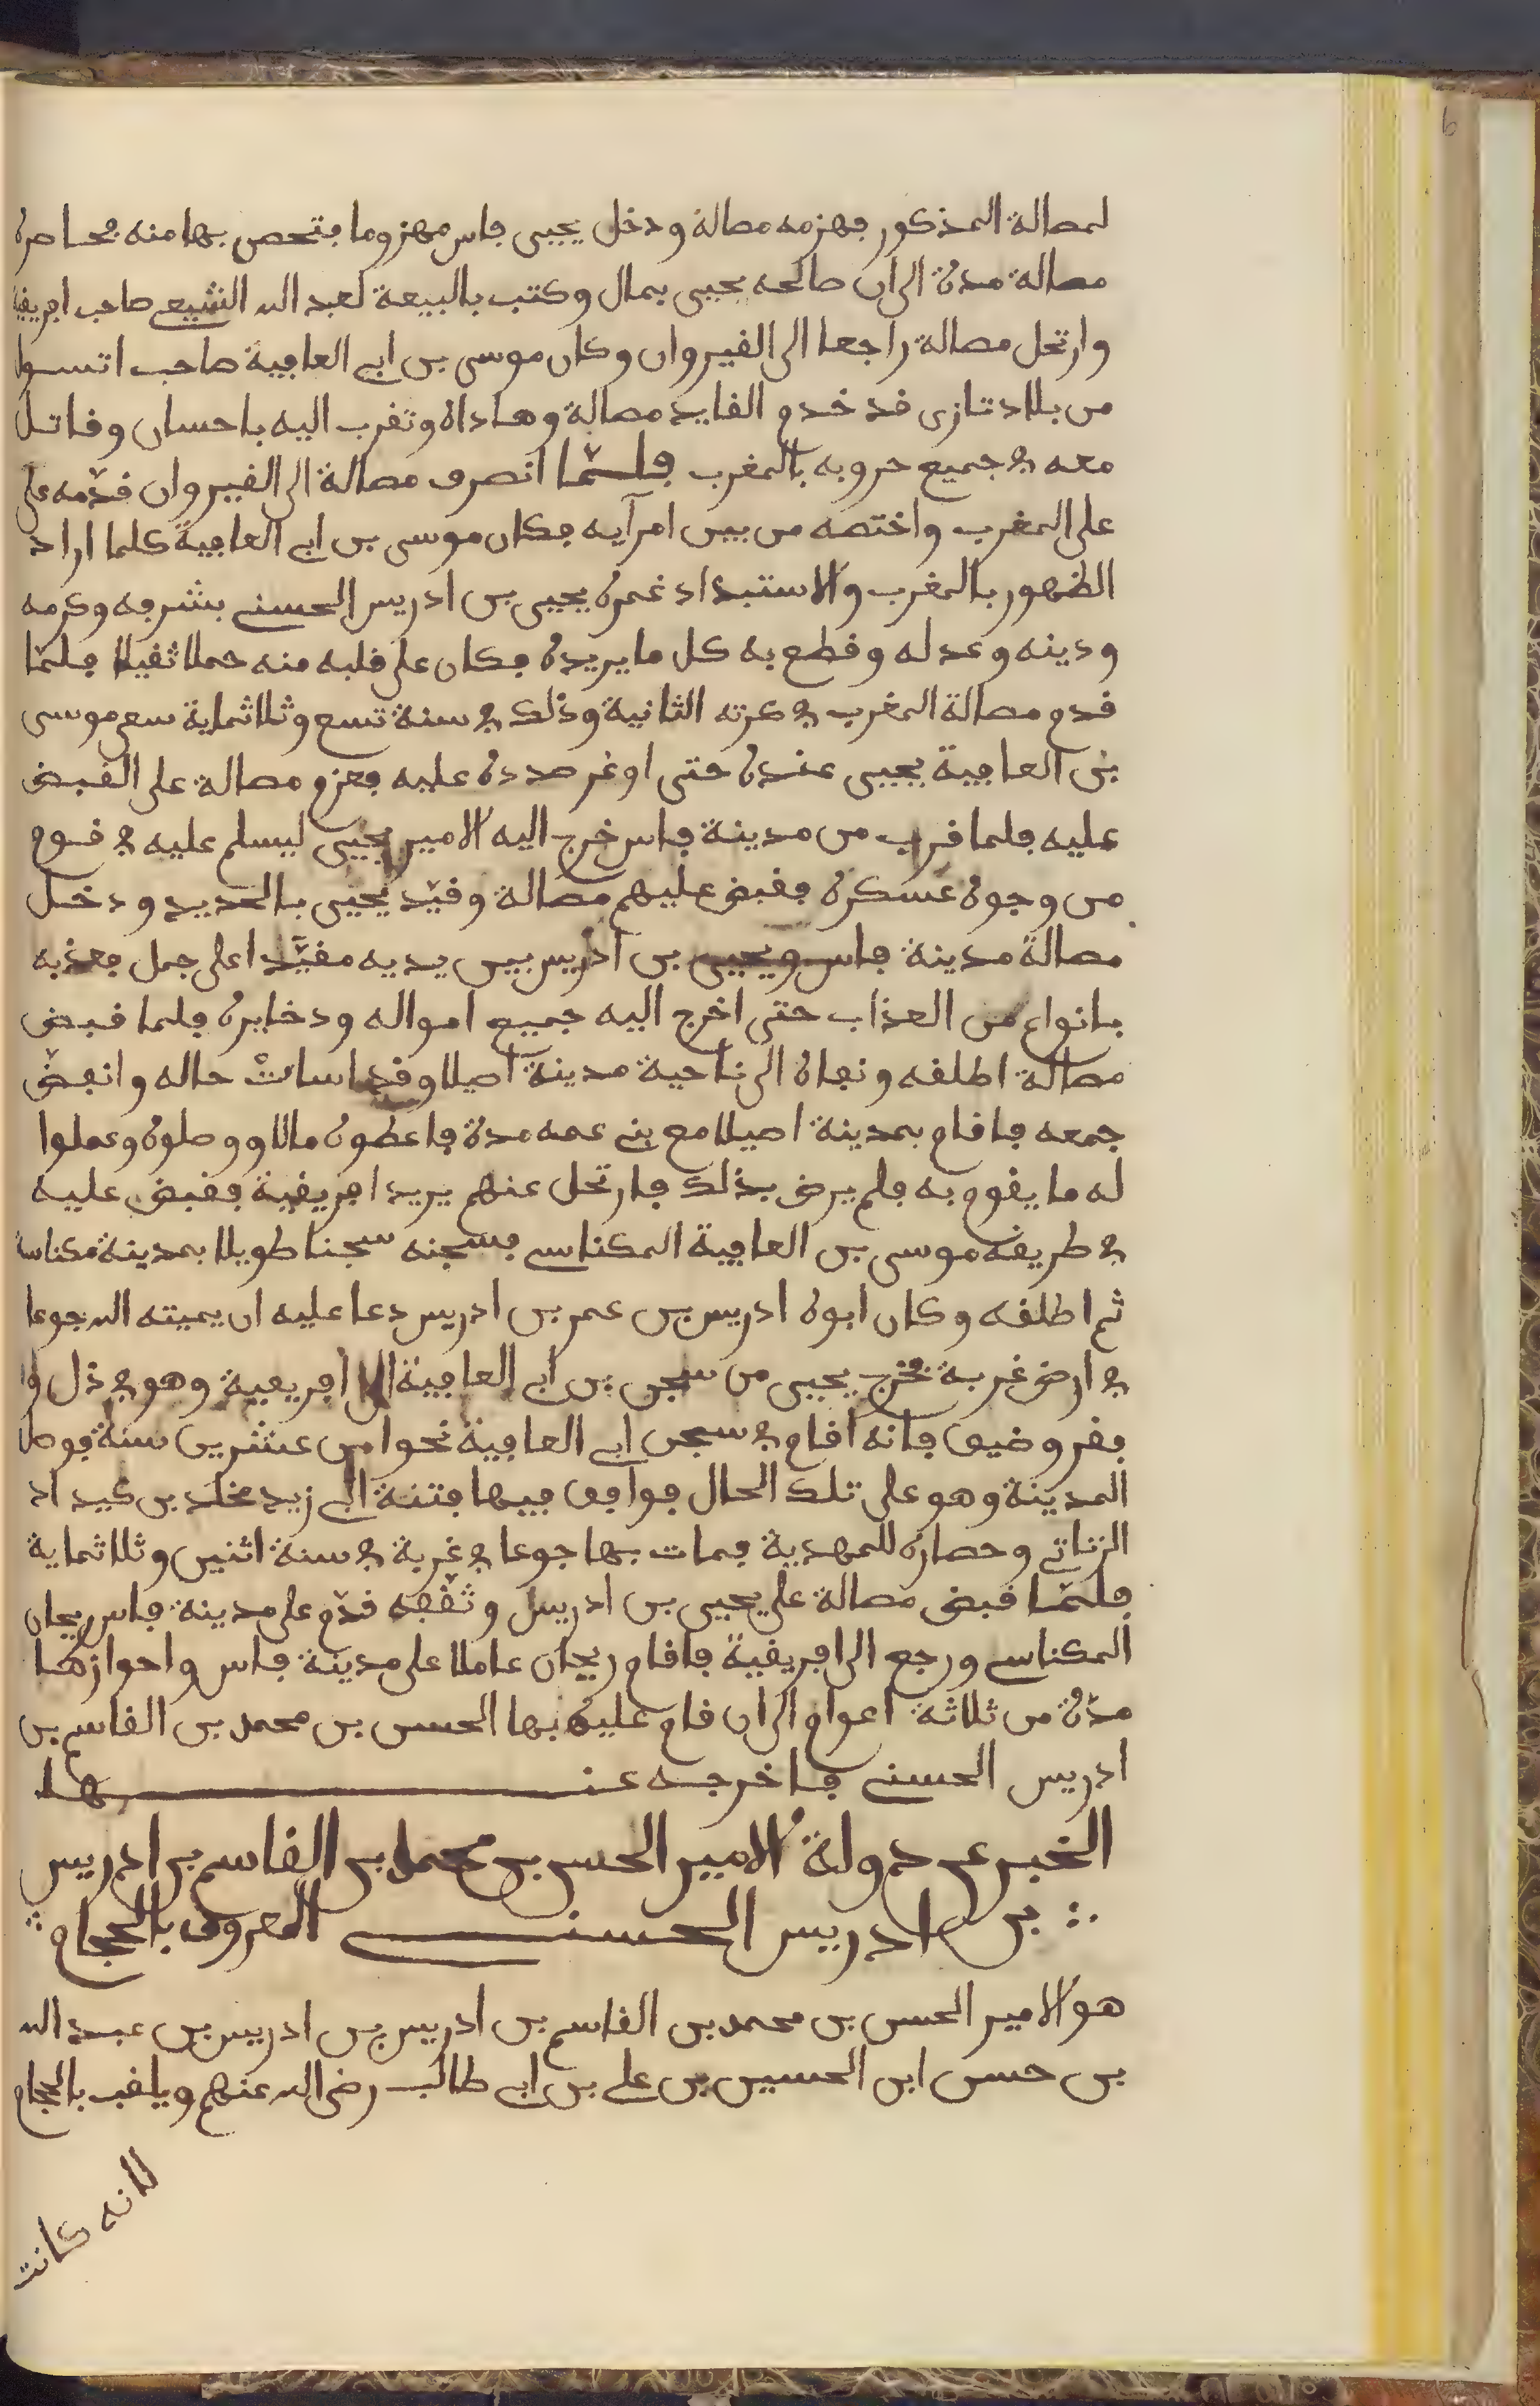 لمصالة المذكور فهزمه مصالة ودخل يحيى فاس مهزوما فتحصن بها منه فحاصره
مصالة مدة الى ان صالحه يحيى بمال وكتب بالبيعة لعبد الله الشيعي صاحب افريقية
وارتحل مصالة راجعا الى القيروان وكان موسى بن ابي العافية صاحب اتسول
من بلاد تازى قد خدم القايد مصالة وهاداه وتقرب اليه باحسان وقاتل
معه في جميع حروبه بالمغرب فلما انصرف مصالة الى القيروان قدّمه على
على المغرب واختصه من بين امرآيه فكان موسى بن ابي العافية كلما اراد
الظهور بالمغرب والاستبداد غمره يحيى بن ادريس الحسني بشرفه وكرمه
ودينه وعدله وقطع به كل ما يريده فكان على قلبه منه حملا ثقيلا فلمّا
قدم مصالة المغرب في كرته الثانية وذلك في سنة تسع وثلاثماية سعى موسى
بن العافية بيحيى عنده حتى اوغر صدره عليه فعزم مصالة على القبض
عليه فلما قرب من مدينة فاس خرج اليه الامير يحيى ليسلم عليه في قوم
من وجوه عسكره فقبض عليهم مصالة وقيّد يحيى بالحديد ودخل
مصالة مدينة فاس ويحيى بن ادريس بين يديه مقيّدا على جمل فعذبه
بانواع من العذاب حتى اخرج اليه جميع امواله ودخايره فلما قبض
مصالة اطلقه ونفاه الى ناحية مدينة اصيلا وقد اسات حاله وانفضّ
جمعه فاقام بمدينة اصيلا مع بني عمه مدة فاعطوه مالا ووصلوه وعملوا
له ما يقوم به فلم يرض بذلك فارتحل عنهم يريد افريقية فقبض عليه
في طريقه موسى بن العافية المكناسي فسجنه سجنا طويلا بمدينة مكناسة
ثم اطلقه وكان ابوه ادريس بن عمر بن ادريس دعا عليه ان يميته الله جوعا
في ارض غربة فخرج يحيى من سجن بن ابي العافية الى افريقية وهو في ذل وا
فقر وضيق فانه اقام في سجن ابي العافية نحوا من عشرين سنة فوصل
المدينة وهو على تلك الحال فوافق فيها فتنة ابي زيد مخلد بن كيداد
الزناتي وحصاره للمهدية فمات بها جوعا في غربة في سنة اثنين وثلاثماية
فلمّا قبض مصالة على يحيى بن ادريس وثقفه قدّم على مدينة فاس ريحان
المكناسي ورجع الى افريقية فاقام ريحان عاملا على مدينة فاس واحوازها
مدّة من ثلاثة اعوام الى ان قام عليه بها الحسن بن محمد بن القاسم بن
ادريس الحسني فاخرجه عنها
الخبر عن دولة الامير الحسن بن محمد بن القاسم بن ادريس
بن ادريس الحسني المعروف بالحجام
هو الامير الحسن بن محمد بن القاسم بن ادريس بن ادريس بن عبد الله
بن حسن ابن الحسين بن علي بن ابي طالب رضي الله عنهم ويلقب بالحجام
لانه كانت